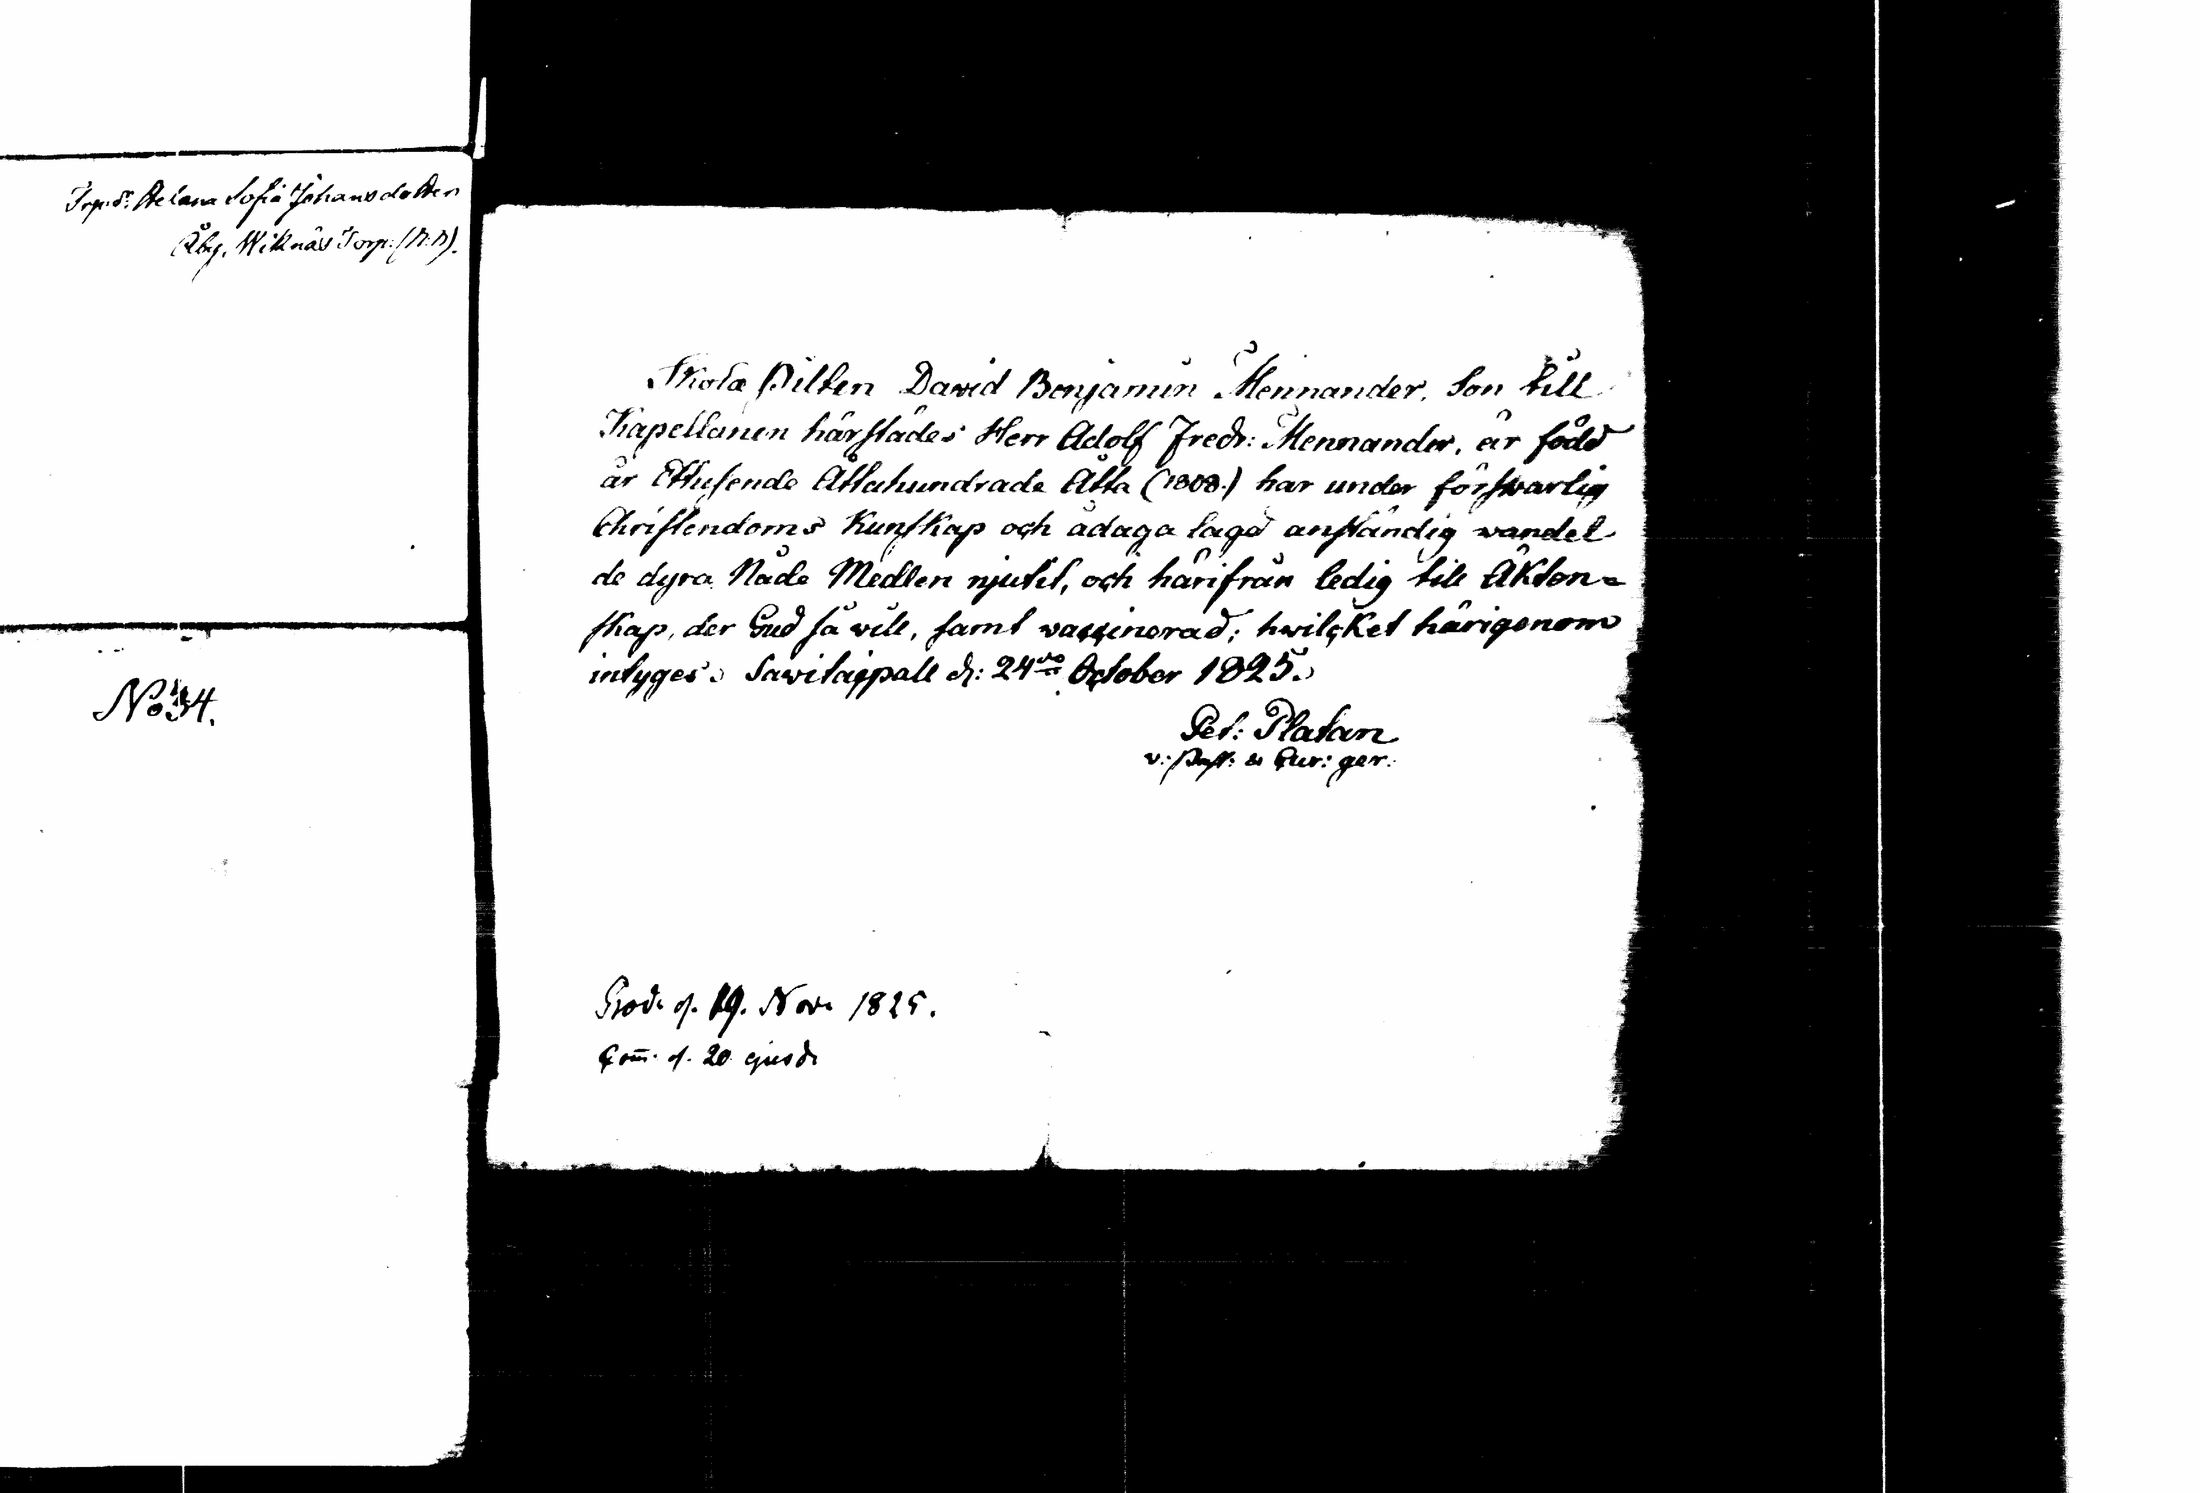 Trp.dr. Helena Sofia Johansdotter
Åby, Wiknäs Torp.
No 34.
Skola Pilten David Benjamin Mennander, Son till
Kapellanen härstädes Herr Adolf Fredr: Mennander, är född
år Ettusende Åttahundrade Åtta (1808.) har under förswarlig
Christendoms Kunskap och ådaga lagd anständig wandel
de dyra Nåde Medlen njutit, och härifrån ledig till Äkten=
skap, der Gud så will, samt vaccinerad; hwilcket härigenom
intyges. Sawitaipall d: 24de October 1825.
Pet: Platan
v: Past: & Cur: ger.
Prod. d. 19. Nov. 1825.
Com̄. d. 20 ejusd.